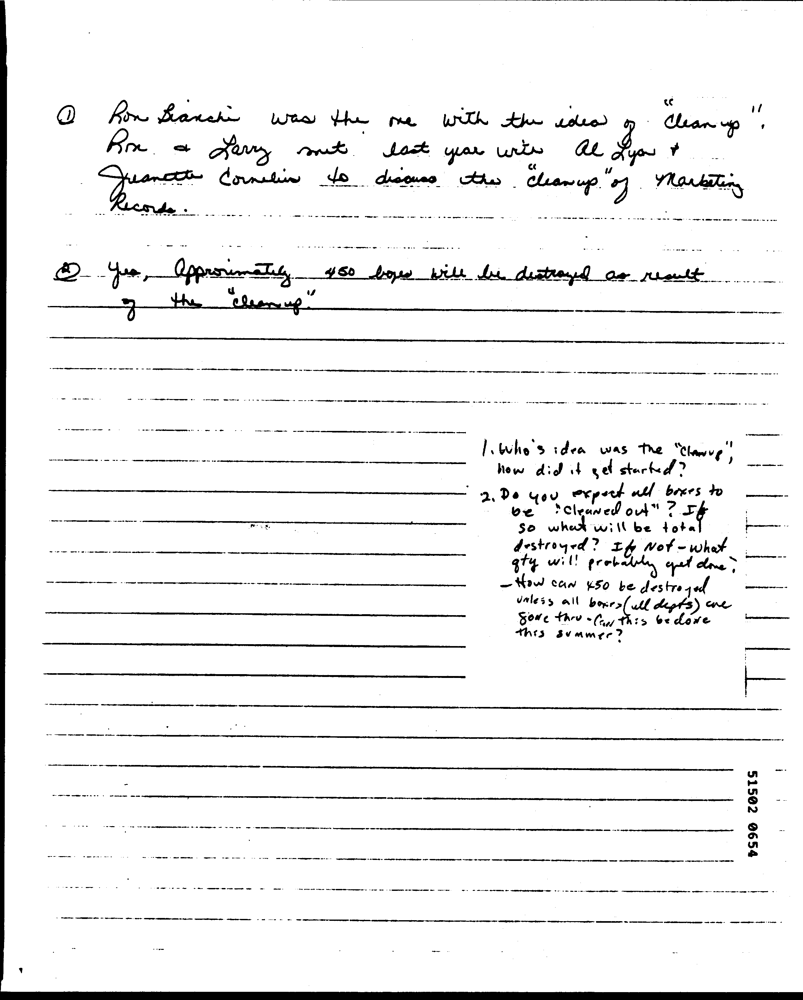 ① Ron Bianchi was the one with the idea of "Clean up".
Ron & Larry met last year with Al Lyon &
Jeanette Cornelius to discuss the "cleanup" of Marketing
Records.
② Yes, Approximately 450 boxes will be destroyed as result
of the "cleanup."
1. Who's idea was the "Cleanup",
how did it get started?
2. Do you expect all boxes to
be "cleaned out"? If
so what will be total
destroyed? If Not - what
qty will probably get done?
- How can 450 be destroyed
unless all boxes (all depts) are
gone thru - Can this be done
this summer?
51502 0654